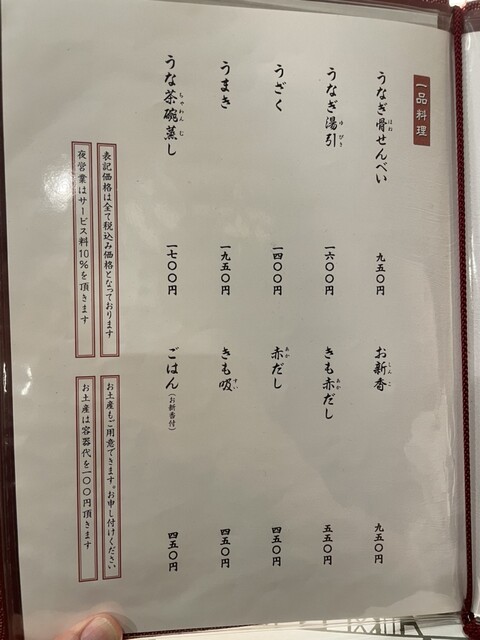 一品料理
うなぎ骨せんべい 九五〇円
うなぎ湯引 一六〇〇円
うざく 一四〇〇円
うまき 一九五〇円
うな茶碗蒸し 一七〇〇円
お新香 九五〇円
きも赤だし 五五〇円
赤だし 四五〇円
きも吸 四五〇円
ごはん(お新香付) 四五〇円
表記価格は全て税込み価格となっております
夜営業はサービス料10%を頂きます
お土産もご用意できます。お申し付けください
お土産は容器代を一〇〇円頂きます